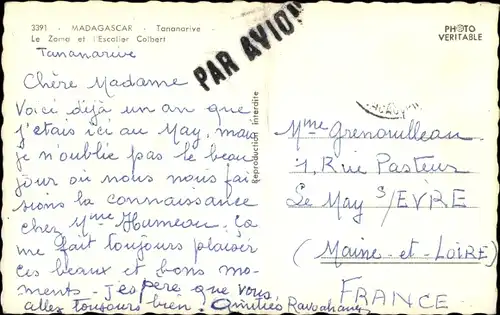 3391 · MADAGASCAR · Tananarive ·
Le Zoma et l'Escalier Colbert
Tananarive
PAR AVION
PHOTO
VERITABLE
Chère Madame
Voici déjà un an que
j'etais ici au May, mais
je n'oublie pas le beau
jour où nous nous fai
sions la connaissance
chez Mme Humeau. Ça
me fait toujours plaisir
ces beaux et bons mo-
ments - J'espère que vous
allez toujours bien. Amitiés
Reproduction interdite
Mme Grenouilleau
1, Rue Pasteur
Le May S/EVRE
(Maine-et-LOIRE)
FRANCE